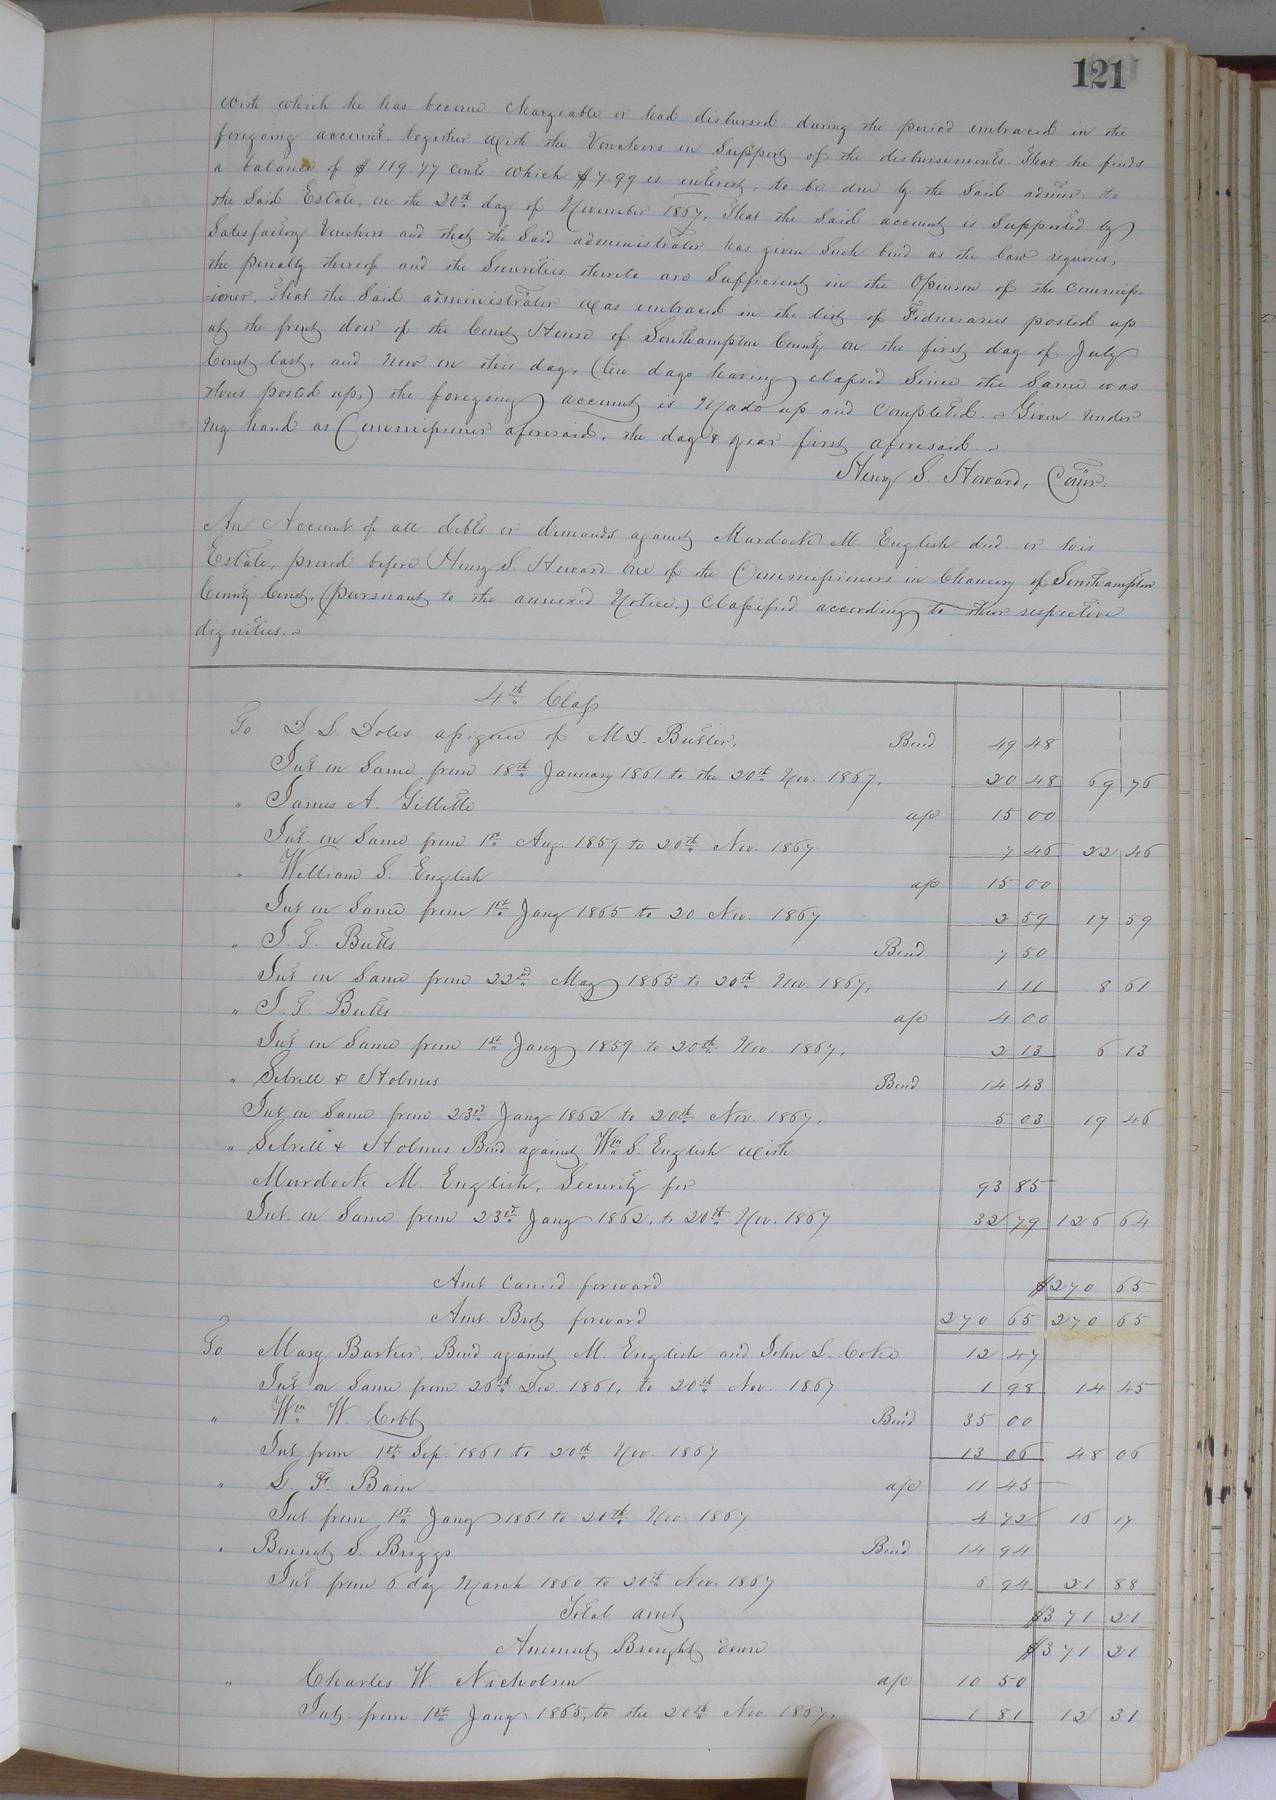 121
with which he has become chargeable or had disbursed during the period embraced in the
foregoing account, together with the Vouchers in Support of the disbursements. That he finds
a balance of $119.77 cents which $7.99 is interest, to be due by the Said admor. to
the Said Estate, on the 20th day of November 1867. That the Said account is Supported by
Satisfactory Vouchers and that the Said administrator has given Such bond as the law requires,
the penalty thereof and the Securities thereto are Sufficient in the Opinion of the commiss-
=ioner. That the Said administrator was embraced in the list of Fiduciaries posted up
at the front door of the Court House of Southampton County on the first day of July
Court last, and now on this day, (ten days having elapsed Since the Same was
thus posted up,) the foregoing account is Made up and completed. Given under
My hand as Commissioner aforesaid, the day & year first aforesaid.
Henry S. Howard, Comr.
An Account of all debts or demands against Murdock M. English decd or his
Estate, proved before Henry S. Howard one of the Commissioners in Chancery of Southampton
County Court, (pursuant to the annexed Notice,) Classified according to their respective
dignities.
4th Class
To D. S. Doles assignee of M. D. Butler. Bond 49 48
Int on Same from 18th January 1861 to the 20th Nov. 1867. 20 48 69 76
" James A. Gillette a/c 15 00
Int. on Same from 1st Aug. 1859 to 20th Nov. 1867 7 46 22 46
" William S. English a/c 15 00
Int on Same from 1st Jany 1865 to 20 Nov. 1867 2 59 17 59
" J. T. Butts Bond 7 50
Int on Same from 22nd May 1865 to 20th Nov. 1867, 1 11 8 61
" J. T. Butts a/c 4 00
Int on Same from 1st Jany 1859 to 20th Nov. 1867. 2 13 6 13
" Sebrell & Holmes Bond 14 43
Int on Same from 23rd Jany 1862 to 20th Nov. 1867. 5 03 19 46
" Sebrell & Holmes Bond against Wm S. English with
Murdock M. English, Security for 93 85
Int. on Same from 23rd Jany 1862. to 20th Nov. 1867 32 79 126 64
Amt Carried forward $270 65
Amt. Brot forward 270 65 270 65
To Mary Barker, Bond against M. English and John L. Coke 12 47
Int on Same from 26th Dec. 1861, to 20th Nov. 1867 1 98 14 45
" Wm W. Cobb Bond 35 00
Int from 1st Sep. 1861 to 20th Nov. 1867 13 06 48 06
" S. F. Bain a/c 11 45
Int from 1st Jany 1861 to 20th Nov. 1867 4 72 16 17
" Bennet S. Briggs Bond 14 94
Int from 6 day March 1860 to 20th Nov. 1867 6 94 21 88
Total amt $371 21
Amount Brought down $371 21
" Charles W. Nicholson a/c 10 50
Int. from 1st Jany 1865, to the 20th Nov. 1867. 1 81 12 31